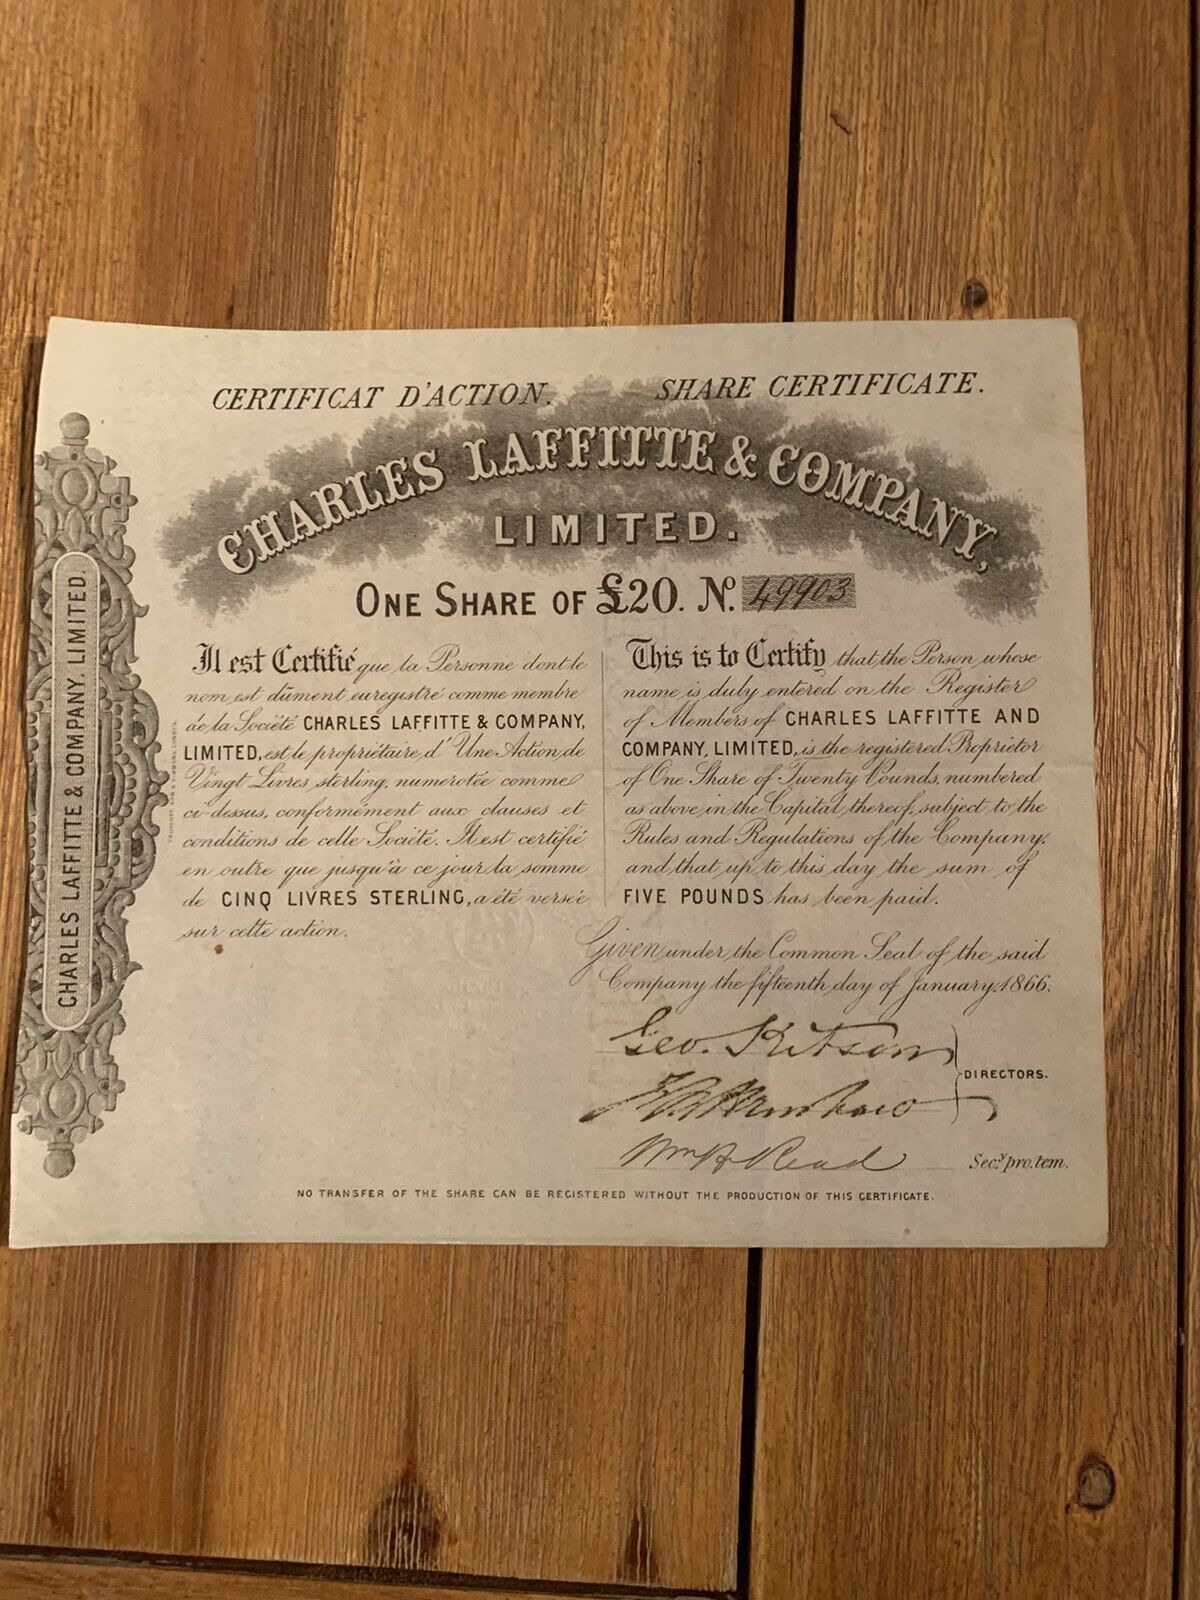 CERTIFICAT D'ACTION. SHARE CERTIFICATE.
CHARLES LAFFITTE & COMPANY,
LIMITED.
ONE SHARE OF £20. No. 49903
Il est Certifié que la Personne dont le
nom est dûment euregistré comme membre
de la Société CHARLES LAFFITTE & COMPANY,
LIMITED, est le propriétaire d'Une Action de
Vingt Livres sterling, numerotée comme
ci-dessus, conformément aux clauses et
conditions de celle Société. Il est certifié
en outre que jusqu'à ce jour la somme
de CINQ LIVRES STERLING, a été versée
sur cette action.
This is to Certify that the Person whose
name is duly entered on the Register
of Members of CHARLES LAFFITTE AND
COMPANY, LIMITED, is the registered Proprietor
of One Share of Twenty Pounds, numbered
as above in the Capital thereof, subject to the
Rules and Regulations of the Company,
and that up to this day the sum of
FIVE POUNDS has been paid.
Given under the Common Seal of the said
Company the fifteenth day of January, 1866.
Geo. Kitson
DIRECTORS.
Wm H Read Secy. pro. tem.
NO TRANSFER OF THE SHARE CAN BE REGISTERED WITHOUT THE PRODUCTION OF THIS CERTIFICATE.
CHARLES LAFFITTE & COMPANY, LIMITED.